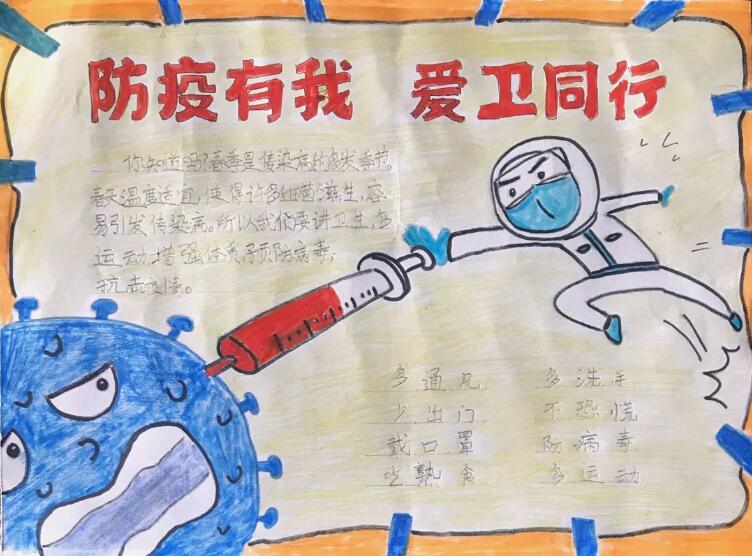 防疫有我 爱卫同行
你知道吗?春季是传染病的多发季节,
春天温度适宜,使得许多细菌滋生,容
易引发传染病。所以我们要讲卫生,多
运动增强体质,预防病毒,
抗击疫情。
多通风 多洗手
少出门 不恐慌
戴口罩 防病毒
吃熟食 多运动